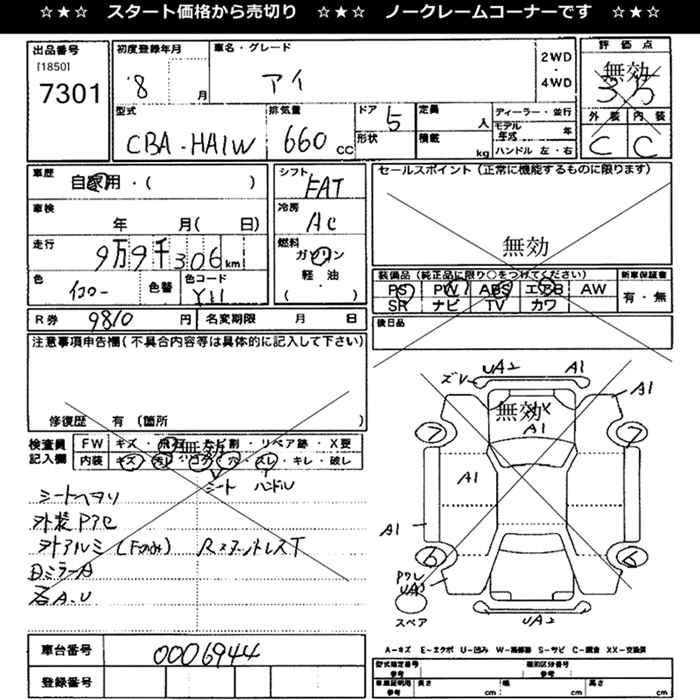 ☆★☆ スタート価格から売切り ☆★☆ ノークレームコーナーです ☆★☆
出品番号
[1850]
7301
初度登録年月
'8
月
車名・グレード
アイ
2WD
・
4WD
評価点
無効
3.5
外装 内装
C C
型式
CBA-HA1W
排気量
660 CC
ドア 5
形状
定員 人
積載 kg
ディーラー・並行
モデル年式 年
ハンドル 左・右
車歴
自家用・( )
車検
年 月( 日)
走行
9万9千306 km
色
イエロー
色替
色コード
Y11
シフト
FAT
冷房
AC
燃料
ガソリン
軽・油
( )
セールスポイント(正常に機能するものに限ります)
無効
装備品(純正品に限り○をつけてください)
PS PW ABS エアB AW
SR ナビ TV カワ
新車保証書
有・無
後日品
R券 9810 円
名変期限 月 日
注意事項申告欄(不具合内容等は具体的に記入して下さい)
修復歴 有(箇所 )
検査員
記入欄
FW キズ・飛石・ヒビ割・リペア跡・X要
無効
内装 キズ・汚レ・コゲ・穴・スレ・キレ・破レ
シート ハンドル
シートヘタリ
外装Pアセ
外アルミ(Fのみ)
石A.U
車台番号 0006944
登録番号
ズレ
UA2
A1
A1
無効
A1
7
7
A1
A1
6
6
UA3
スペア
UA2
A-キズ E-エクボ U-凹み W-補修跡 S-サビ C-腐食 XX-交換済
型式指定番号
参考
類別区分番号
参考
車庫証明用
参考
長さ cm
幅 cm
高さ cm